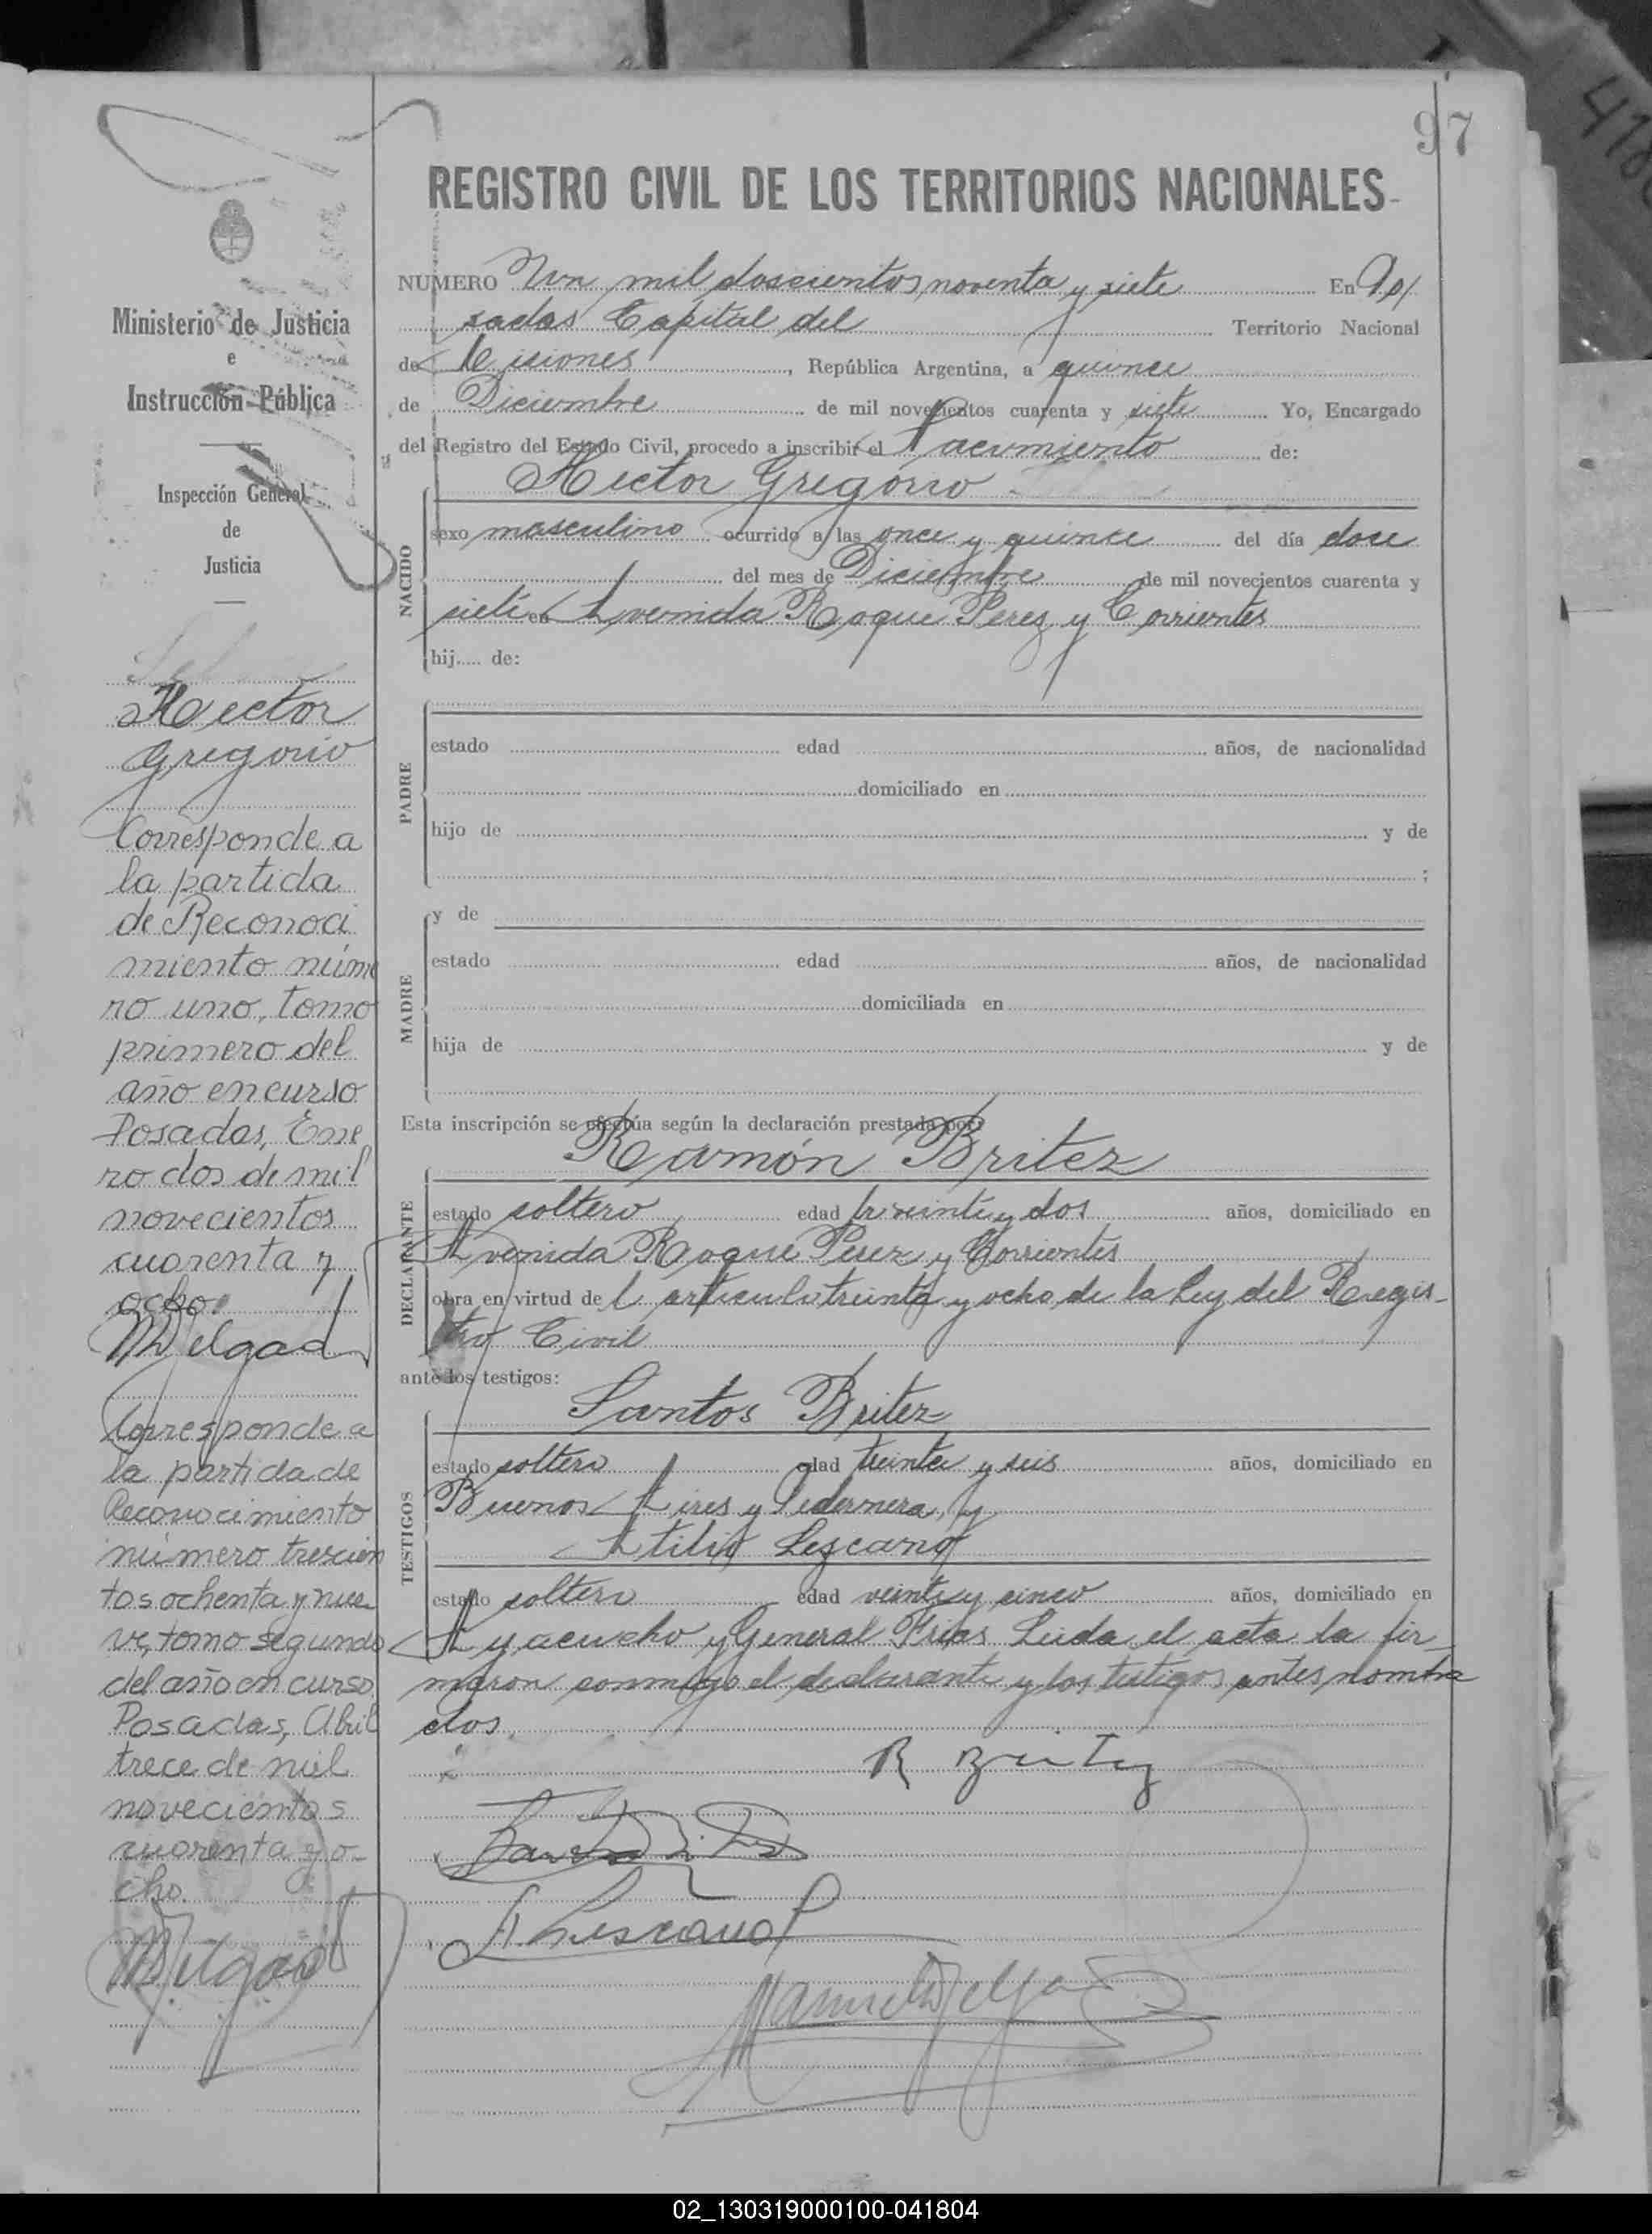 97
REGISTRO CIVIL DE LOS TERRITORIOS NACIONALES
Ministerio de Justicia
e
Instrucción Pública
Inspección General
de
Justicia
Hector
Gregorio
Corresponde a
la partida
de Reconoci
miento núme
ro uno, tomo
primero del
año en curso
Posadas, Ene
ro dos de mil
novecientos
cuarenta y
ocho.
MDelgado
Corresponde a
la partida de
Reconocimiento
número trescien
tos ochenta y nue
ve, tomo segundo
del año en curso
Posadas, Abril
trece de mil
novecientos
cuarenta y o-
cho.
MDelgado
NUMERO Un mil doscientos noventa y siete En Po/
sadas Capital del Territorio Nacional
de Misiones, República Argentina, a quince
de Diciembre de mil novecientos cuarenta y siete Yo, Encargado
del Registro del Estado Civil, procedo a inscribir el Nacimiento de:
Hector Gregorio
NACIDO
sexo masculino ocurrido a las once y quince del día doce
del mes de Diciembre de mil novecientos cuarenta y
siete en Avenida Roque Perez y Corrientes
hij..... de:
PADRE
estado edad años, de nacionalidad
domiciliado en
hijo de y de
;
MADRE
y de
estado edad años, de nacionalidad
domiciliada en
hija de y de
Esta inscripción se efectúa según la declaración prestada por:
Ramón Britez
DECLARANTE
estado soltero edad treinta y dos años, domiciliado en
Avenida Roque Perez y Corrientes
obra en virtud del articulo treinta y ocho de la Ley del Regis-
tro Civil
ante los testigos:
Santos Britez
TESTIGOS
estado soltero edad treinta y seis años, domiciliado en
Buenos Aires y Pedernera, y
Atilio Lezcano
estado soltero edad veinte y cinco años, domiciliado en
Ayacucho y General Frias Leida el acta la fir-
maron conmigo el declarante y los testigos antes nombra
dos.
R Britez
A Lescano
Manuel Delgado
02_130319000100-041804